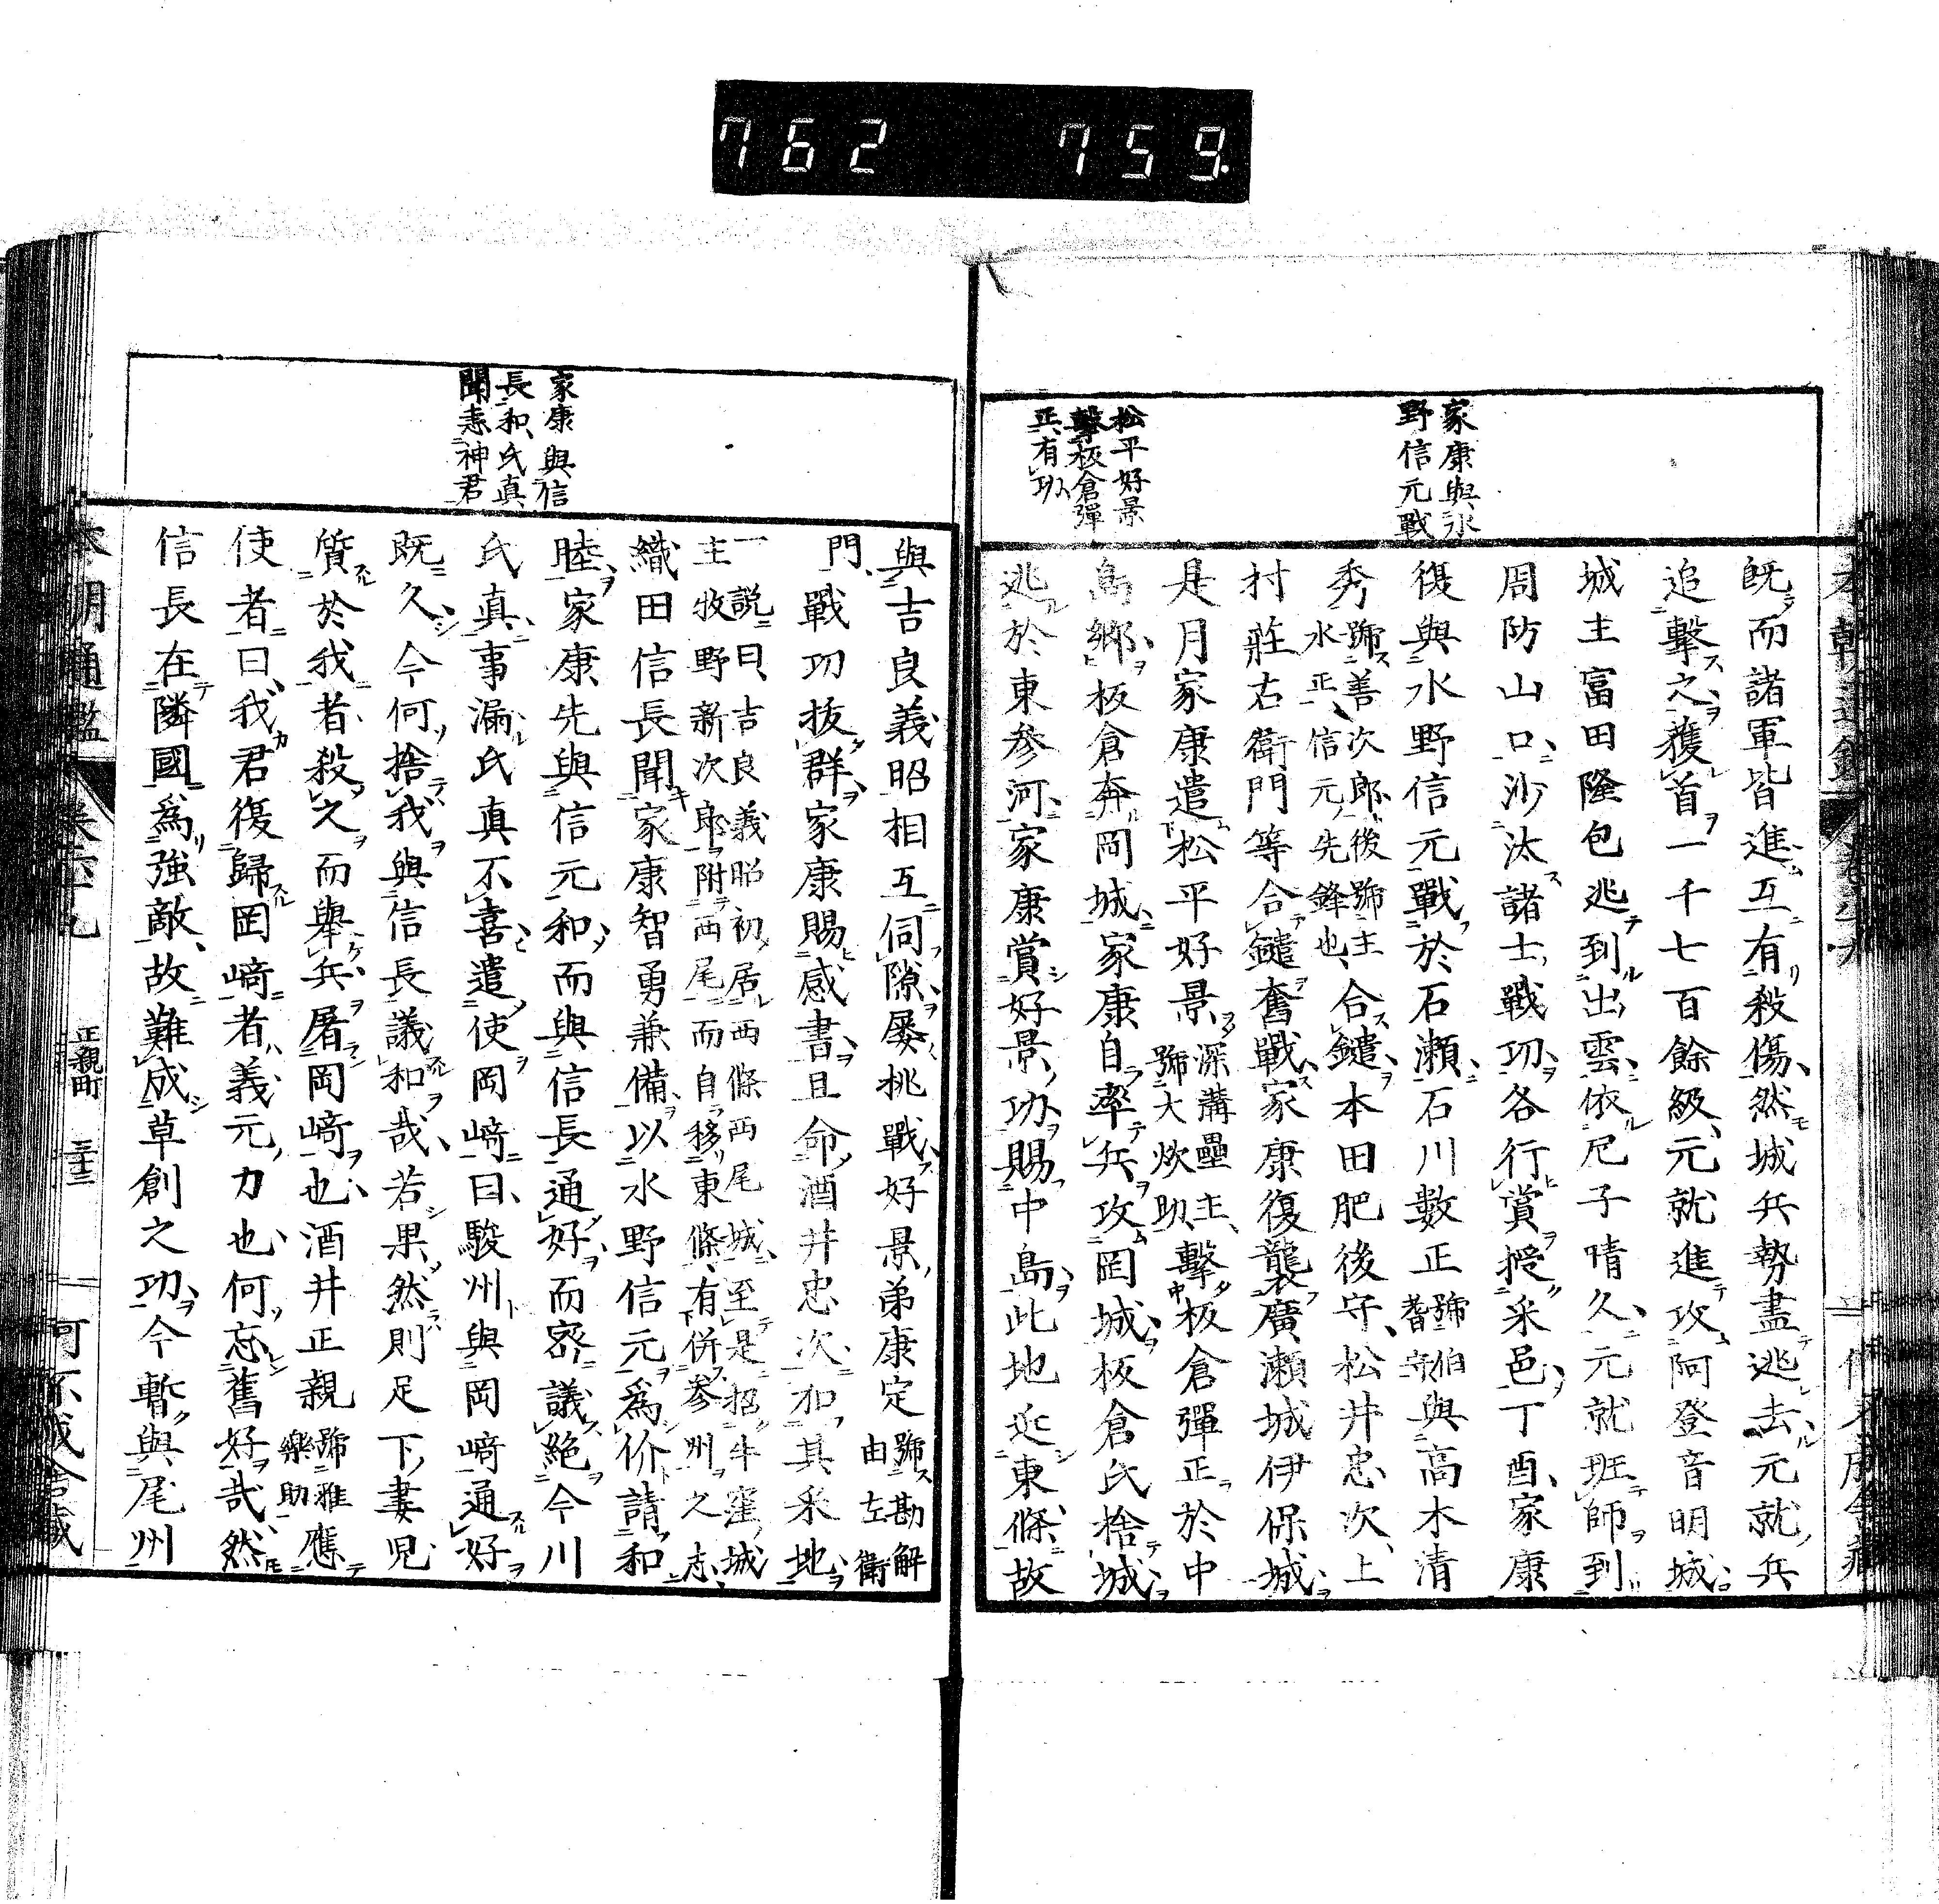 762 759
家康與水
野信元戰
松平好景
擊板倉彈
正有功
既而諸軍皆進互有殺傷然城兵勢盡逃去元就兵
追擊之獲首一千七百餘級元就進攻阿登音明城
城主富田隆包逃到出雲依尼子晴久元就班師到
周防山口沙汰諸士戰功各行賞授采邑丁酉家康
復與水野信元戰於石瀨石川數正號伯耆守與高木清
秀號善次郎後號主水正信元先鋒也合鑓本田肥後守松井忠次上
村莊右衛門等合鑓奮戰家康復襲廣瀨城伊保城
是月家康遣松平好景深溝壘主號大炊助擊板倉彈正於中
島鄉板倉奔岡城家康自率兵攻岡城板倉氏捨城
逃於東參河家康賞好景功賜中島此地近東條故
家康與信
長和氏真
聞恚神君
與吉良義昭相互伺隙屡挑戰好景弟康定號勘解由左衛
門戰功拔群家康賜感書且命酒井忠次加其采地
一說曰吉良義昭初居西條西尾城至是招牛窪城
主牧野新次郎附西尾而自移東條有併參州之志
織田信長聞家康智勇兼備以水野信元爲价請和
睦家康先與信元和而與信長通好而密議絕今川
氏真事漏氏真不喜遣使岡崎曰駿州與岡崎通好
既久今何捨我與信長議和哉若果然則足下妻兒
質於我者殺之而舉兵屠岡崎也酒井正親號雅樂助應
使者曰我君復歸岡崎者義元力也何忘舊好哉然
信長在隣國爲強敵故難成草創之功今暫與尾州
本朝通鑑
正親町 三十三